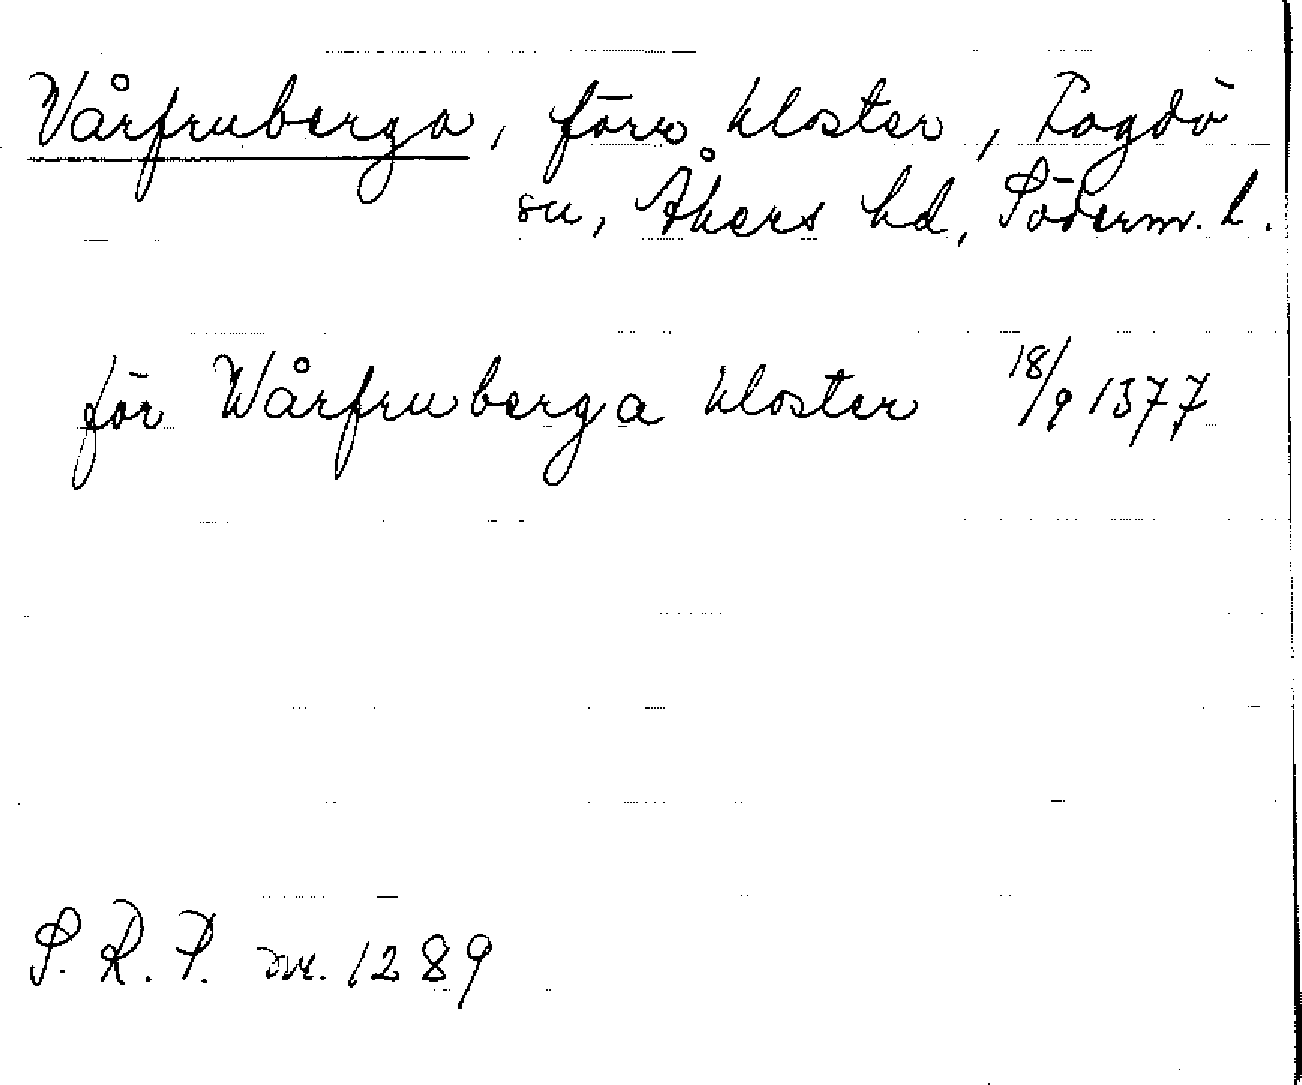 Vårfruberga, förr kloster, Fogdö
sn, Åkers hd, Söderm. l.
för Wårfruberga kloster 18/9 1377
S. R. P. nr. 1289